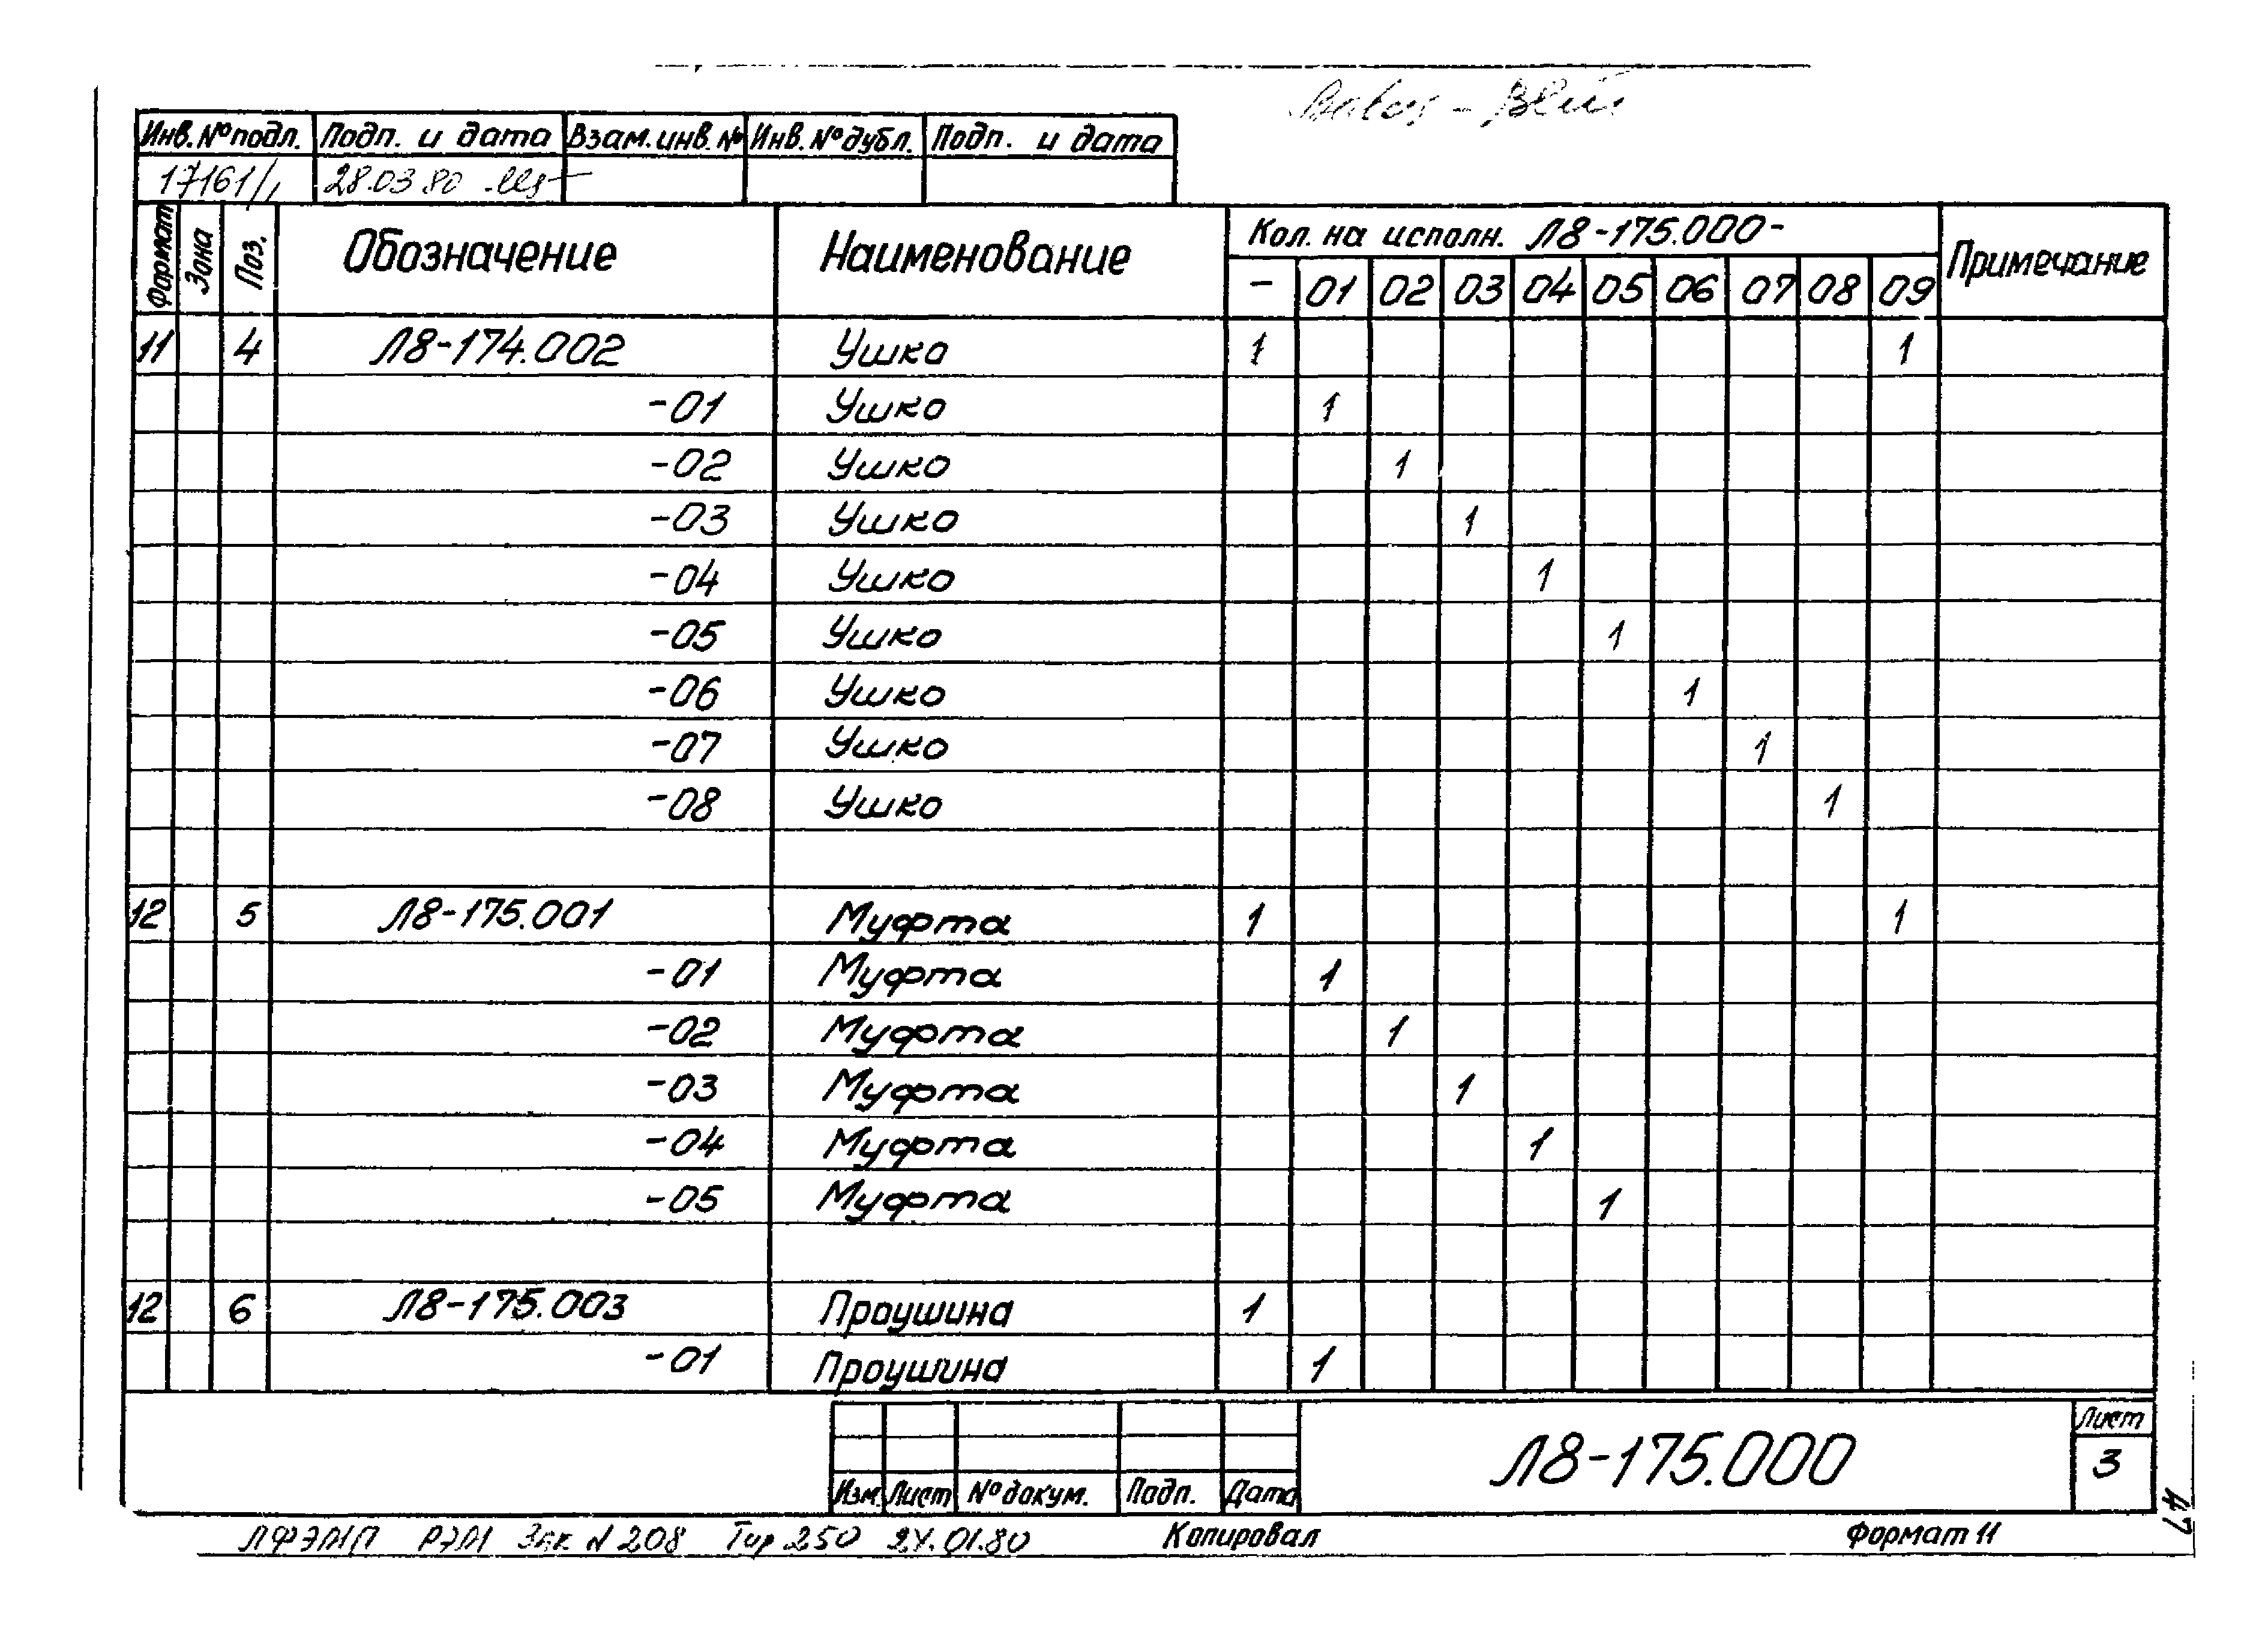 Инв.№подл. Подп. и дата Взам.инв.№ Инв.№дубл. Подп. и дата
17161/1 28.03.80
Формат Зона Поз. Обозначение Наименование Кол. на исполн. Л8-175.000- Примечание
- 01 02 03 04 05 06 07 08 09
11 4 Л8-174.002 Ушко 1 1
-01 Ушко 1
-02 Ушко 1
-03 Ушко 1
-04 Ушко 1
-05 Ушко 1
-06 Ушко 1
-07 Ушко 1
-08 Ушко 1
12 5 Л8-175.001 Муфта 1 1
-01 Муфта 1
-02 Муфта 1
-03 Муфта 1
-04 Муфта 1
-05 Муфта 1
12 6 Л8-175.003 Проушина 1
-01 Проушина 1
Изм. Лист №докум. Подп. Дата Л8-175.000 Лист
3
47
ЛФЭМП РЭМ Зак N 208 Тир 250 24.01.80 Копировал Формат 11